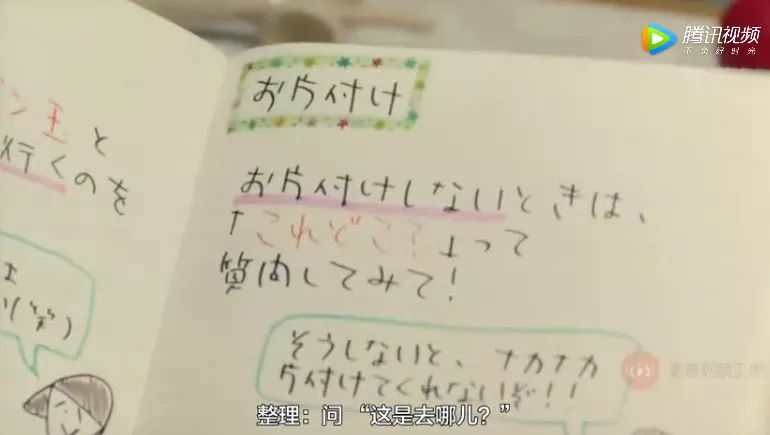 ン王と
行くのを
お片付け
お片付けしないときは、
「これどこ？」って
質問してみて！
そうしないと、ナカナカ
片付けてくれないぞ！！
整理：问“这是去哪儿？”
腾讯视频
不负好时光